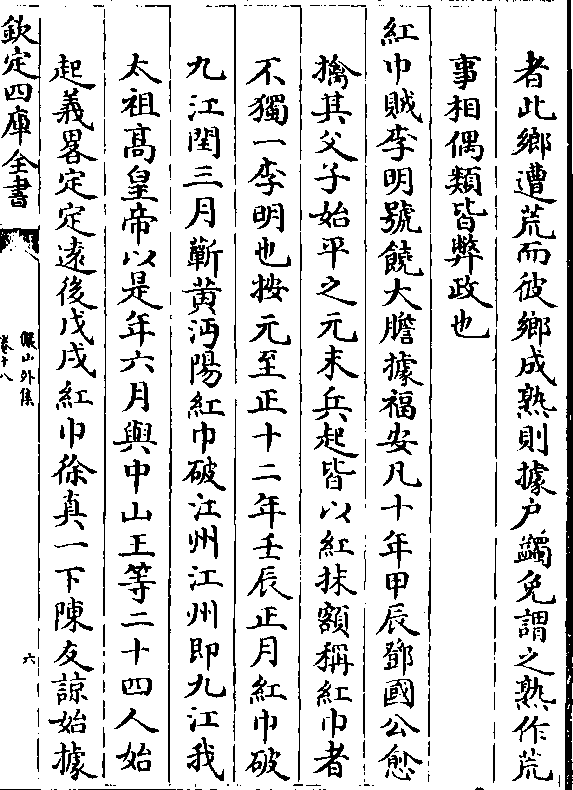 者此鄉遭荒而彼鄉成熟則據户蠲免謂之熟作荒
事相偶類皆弊政也
紅巾賊李明號饒大膽據福安凡十年甲辰鄧國公愈
擒其父子始平之元末兵起皆以紅抹額稱紅巾者
不獨一李明也按元至正十二年壬辰正月紅巾破
九江閏三月蘄黄沔陽紅巾破江州江州即九江我
太祖髙皇帝以是年六月與中山王等二十四人始
起義畧定定逺後戊戌紅巾徐真一下陳友諒始據
欽定四庫全書
儼山外集
卷十八
六